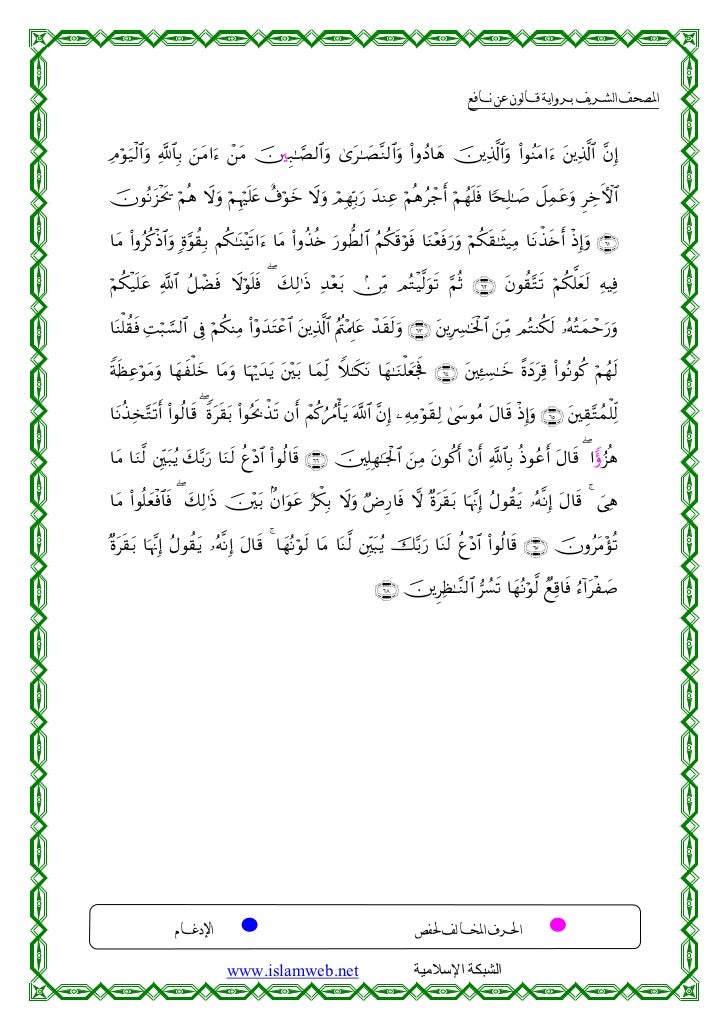 المصحف الشريف برواية قالون عن نافع
إِنَّ ٱلَّذِينَ ءَامَنُواْ وَٱلَّذِينَ هَادُواْ وَٱلنَّصَٰرَىٰ وَٱلصَّٰبِينَ مَنْ ءَامَنَ بِٱللَّهِ وَٱلْيَوْمِ
ٱلْأٓخِرِ وَعَمِلَ صَٰلِحًا فَلَهُمْ أَجْرُهُمْ عِندَ رَبِّهِمْ وَلَا خَوْفٌ عَلَيْهِمْ وَلَا هُمْ يَحْزَنُونَ
۝٦١ وَإِذْ أَخَذْنَا مِيثَٰقَكُمْ وَرَفَعْنَا فَوْقَكُمُ ٱلطُّورَ خُذُواْ مَا ءَاتَيْنَٰكُم بِقُوَّةٍ وَٱذْكُرُواْ مَا
فِيهِ لَعَلَّكُمْ تَتَّقُونَ ۝٦٢ ثُمَّ تَوَلَّيْتُم مِّنۢ بَعْدِ ذَٰلِكَ ۖ فَلَوْلَا فَضْلُ ٱللَّهِ عَلَيْكُمْ
وَرَحْمَتُهُۥ لَكُنتُم مِّنَ ٱلْخَٰسِرِينَ ۝٦٣ وَلَقَدْ عَلِمْتُمُ ٱلَّذِينَ ٱعْتَدَوْاْ مِنكُمْ فِى ٱلسَّبْتِ فَقُلْنَا
لَهُمْ كُونُواْ قِرَدَةً خَٰسِـِٔينَ ۝٦٤ فَجَعَلْنَٰهَا نَكَٰلًا لِّمَا بَيْنَ يَدَيْهَا وَمَا خَلْفَهَا وَمَوْعِظَةً
لِّلْمُتَّقِينَ ۝٦٥ وَإِذْ قَالَ مُوسَىٰ لِقَوْمِهِۦ إِنَّ ٱللَّهَ يَأْمُرُكُمْ أَن تَذْبَحُواْ بَقَرَةً ۖ قَالُواْ أَتَتَّخِذُنَا
هُزُؤًا ۖ قَالَ أَعُوذُ بِٱللَّهِ أَنْ أَكُونَ مِنَ ٱلْجَٰهِلِينَ ۝٦٦ قَالُواْ ٱدْعُ لَنَا رَبَّكَ يُبَيِّن لَّنَا مَا
هِىَ ۚ قَالَ إِنَّهُۥ يَقُولُ إِنَّهَا بَقَرَةٌ لَّا فَارِضٌ وَلَا بِكْرٌ عَوَانٌۢ بَيْنَ ذَٰلِكَ ۖ فَٱفْعَلُواْ مَا
تُؤْمَرُونَ ۝٦٧ قَالُواْ ٱدْعُ لَنَا رَبَّكَ يُبَيِّن لَّنَا مَا لَوْنُهَا ۚ قَالَ إِنَّهُۥ يَقُولُ إِنَّهَا بَقَرَةٌ
صَفْرَآءُ فَاقِعٌ لَّوْنُهَا تَسُرُّ ٱلنَّٰظِرِينَ ۝٦٨
الحرف المخالف لحفص الإدغام
الشبكة الإسلامية www.islamweb.net